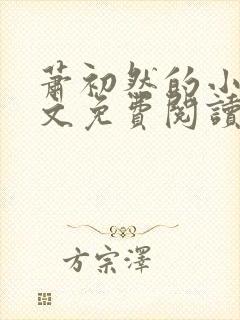 蕭初然的小
文免費閱讀
方宗澤